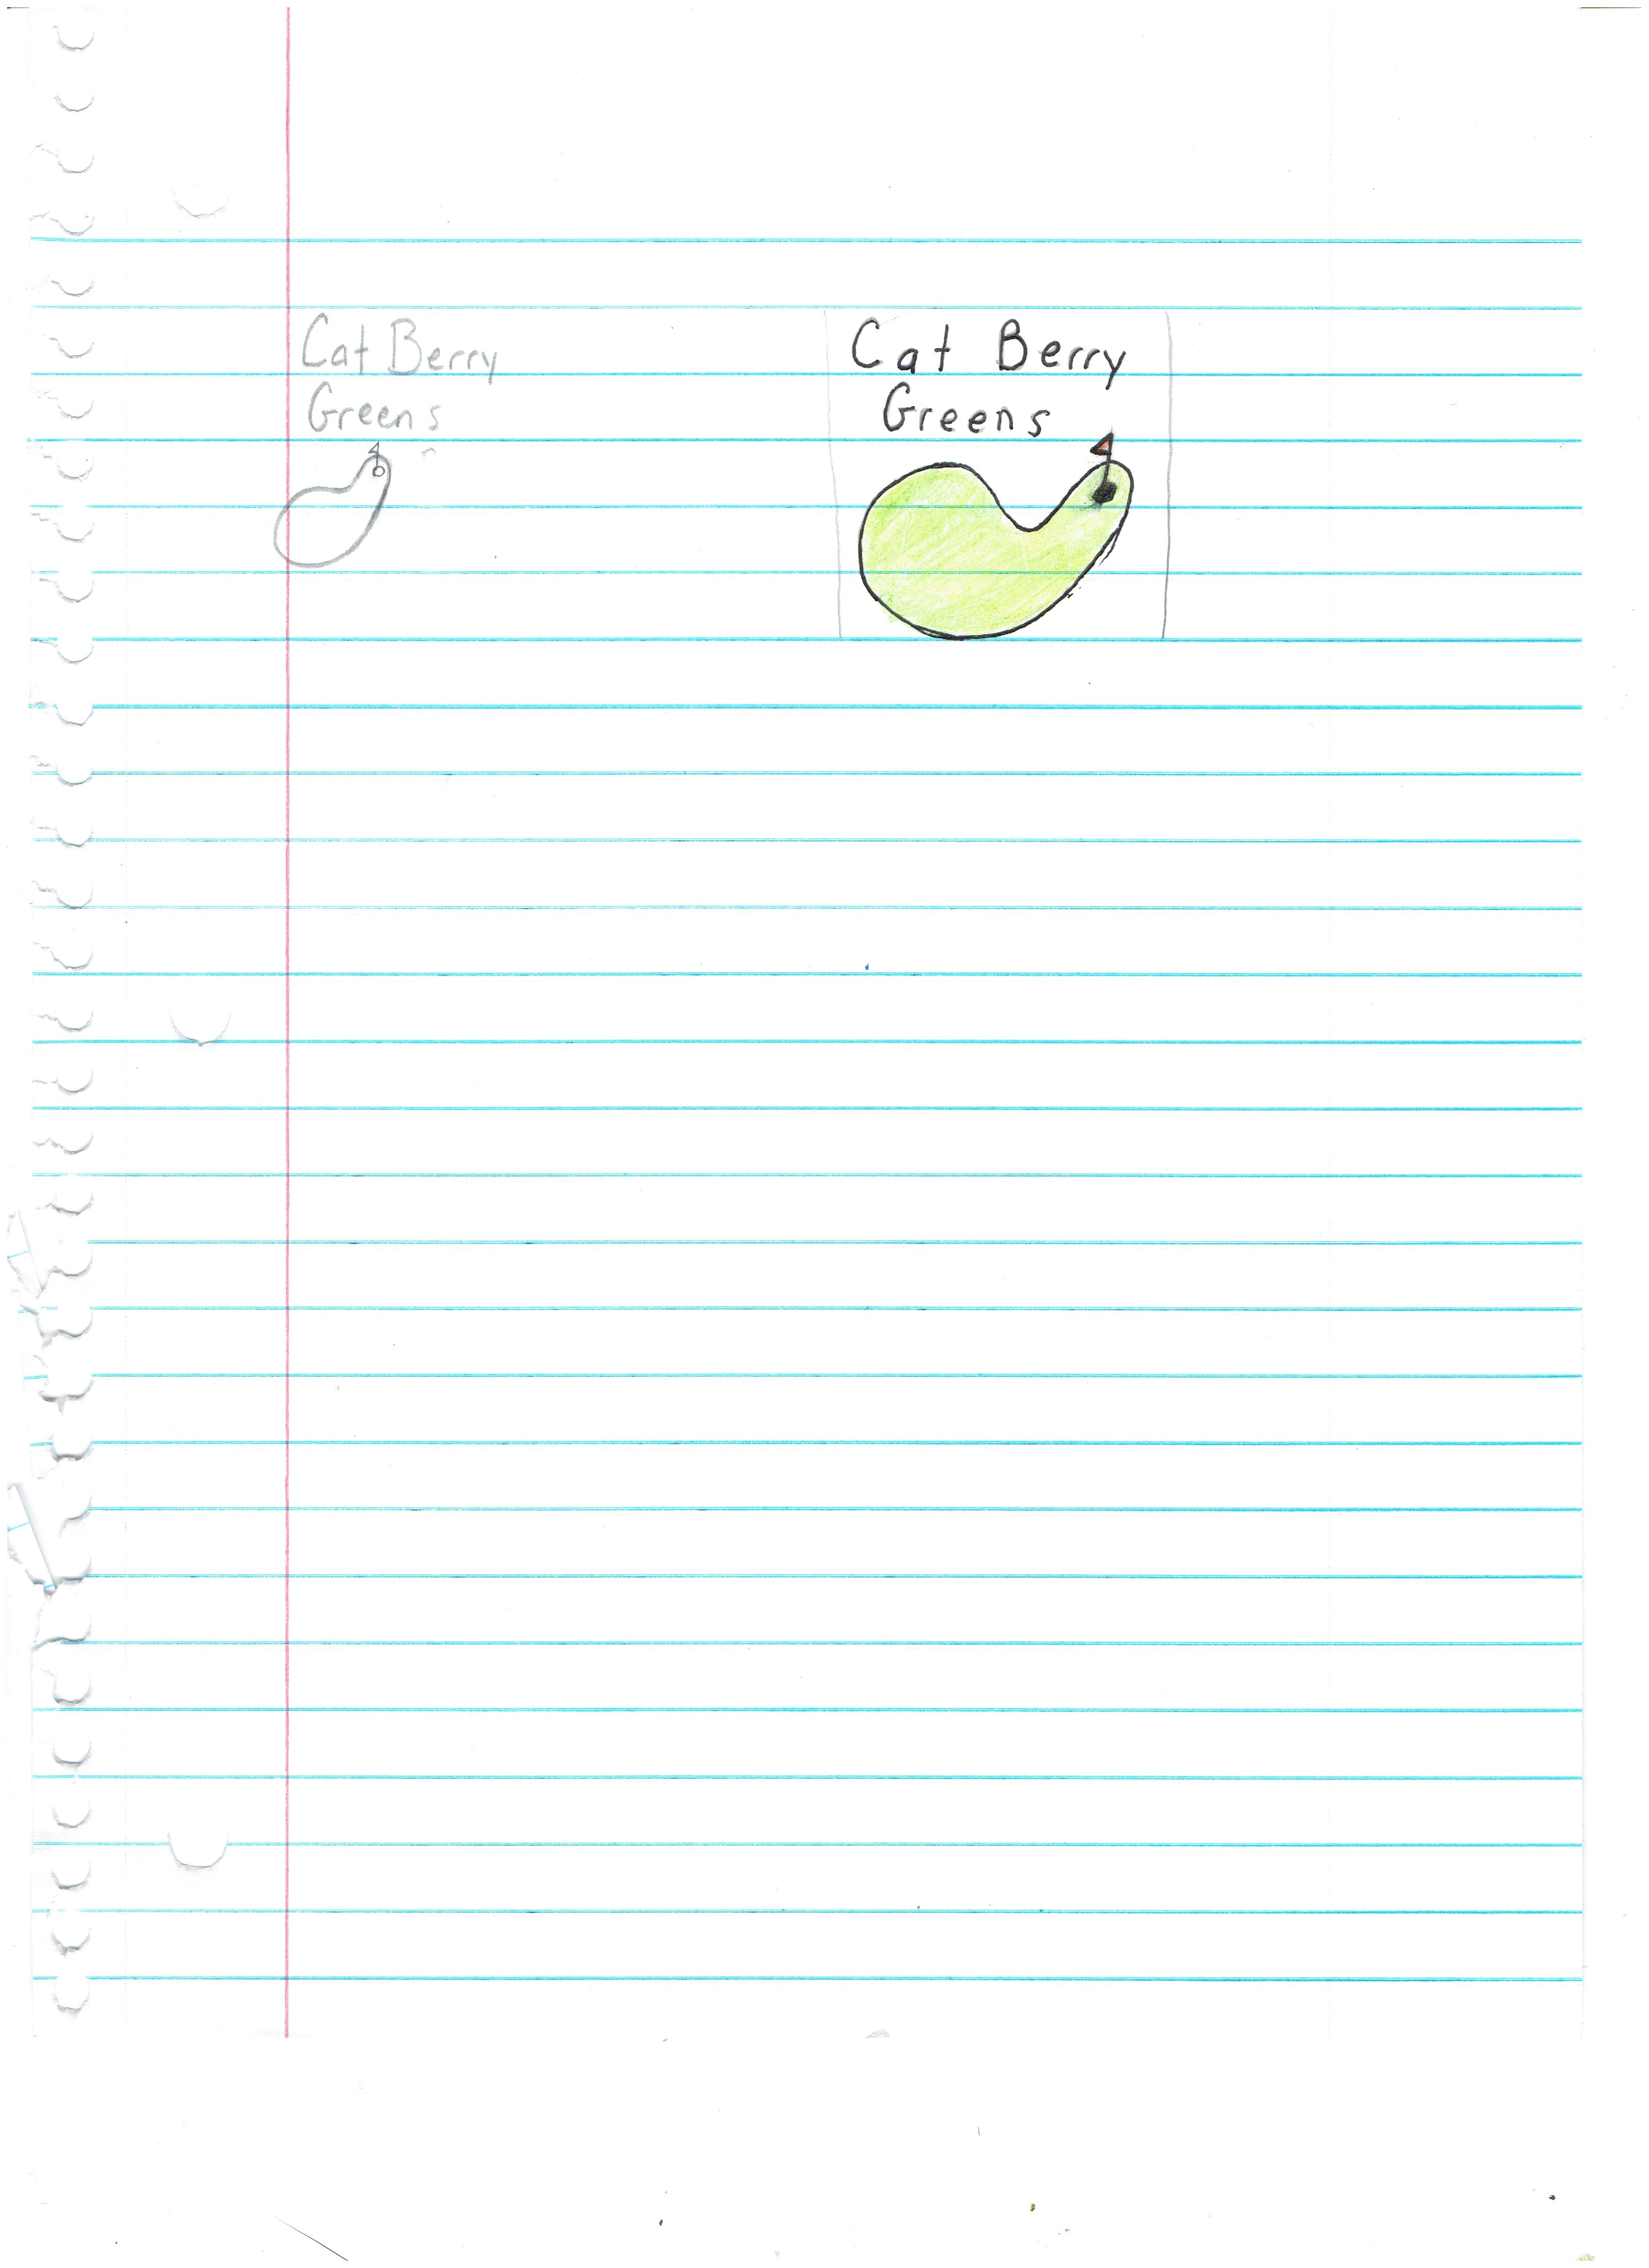 Cat Berry
Greens
Cat Berry
Greens